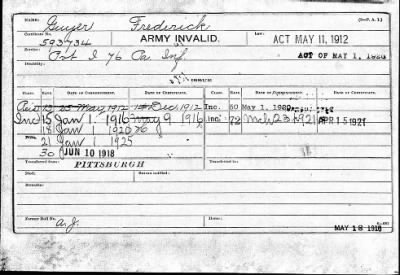 NAME: Geuser Frederick (Dept. A. I.)
Certificate No. ARMY INVALID. LAW: ACT MAY 11, 1912
593734
Service: Pvt I 76 Pa Inf. ACT OF MAY 1, 1920
Disability:
CLASS. RATE. DATE OF COMMENCEMENT. DATE OF CERTIFICATE. CLASS. RATE. DATE OF COMMENCEMENT. DATE OF CERTIFICATE.
15 25 May, 1912 Dec. 1912 Inc. 60 May 1, 1920
Inc 15 Jan 1. 1916 May 9 1916 Inc 72 Mch 23 1921 APR 15 1921
18 Jan 1 1920
21 Jan 1 1925
30 JUN 10 1918
Transferred from: Transferred to:
PITTSBURGH
Died: Bureau notified:
Former Roll No. Home:
MAY 18 1916